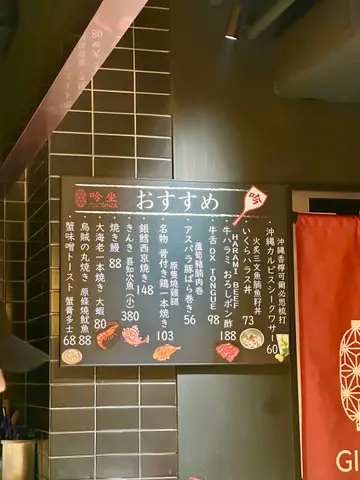 吟坐
GINZA
おすすめ
吟
沖縄香檸可爾必思梳打
沖縄カルピスシークワサー 60
火炙三文魚腩魚籽丼
いくらハラス丼 73
HARAMI BEEF
牛ハラミおろしポン酢 188
牛舌 OX TONGUE 98
蘆筍豬腩肉卷
アスパラ豚ばら巻き 56
原隻燒雞腿
名物 骨付き鶏一本焼き 103
銀鱈西京焼き 148
きんき 喜知次魚(小) 380
焼き鰻 88
大海老一本焼き 大蝦 80
烏賊の丸焼き 原條燒魷魚 88
蟹味噌トースト 蟹膏多士 68
GI